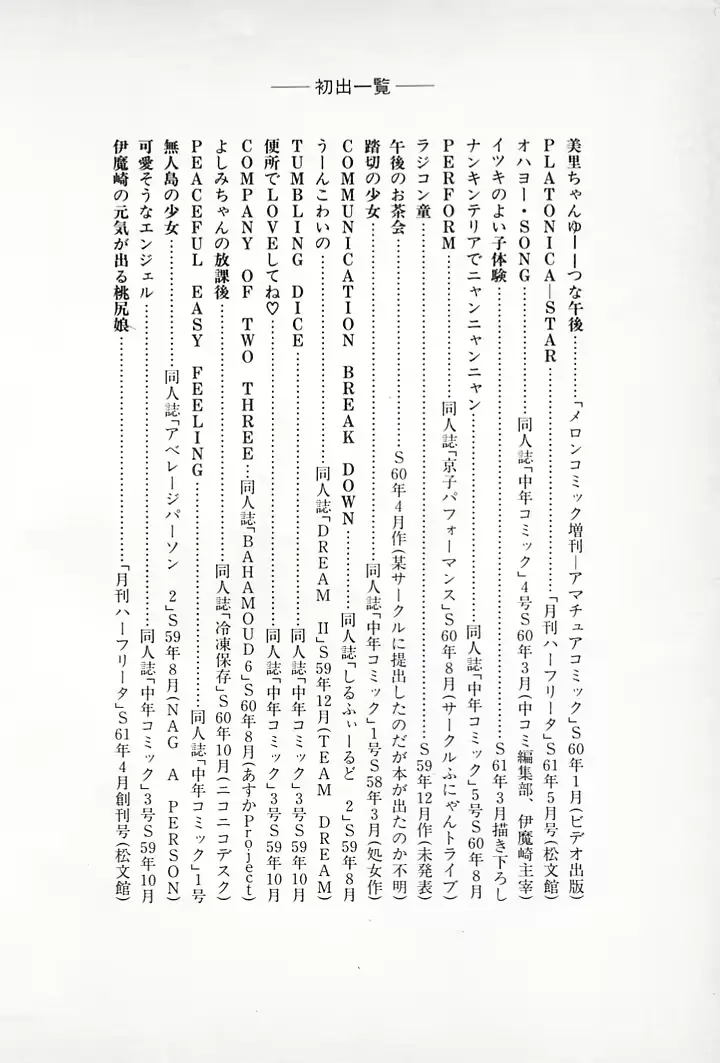 初出一覧
美里ちゃんゆーーつな午後…………「メロンコミック増刊―アマチュアコミック」S60年1月(ビデオ出版)
PLATONICA―STAR……………………「月刊ハーフリータ」S61年5月号(松文館)
オハヨー・SONG……………同人誌「中年コミック」4号S60年3月(中コミ編集部、伊魔崎主宰)
イツキのよい子体験……………………………………………S61年3月描き下ろし
ナンキンテリアでニャンニャンニャン……………………同人誌「中年コミック」5号S60年8月
PERFORM……………同人誌「京子パフォーマンス」S60年8月(サークルふにゃんトライブ)
ラジコン童……………………………………………………S59年12月作(未発表)
午後のお茶会……………………S60年4月作(某サークルに提出したのだが本が出たのか不明)
踏切の少女………………………………同人誌「中年コミック」1号S58年3月(処女作)
COMMUNICATION BREAK DOWN………同人誌「しるふぃーるど 2」S59年8月
うーんこわいの……………………同人誌「DREAM II」S59年12月(TEAM DREAM)
TUMBLING DICE……………………………同人誌「中年コミック」3号S59年10月
便所でLOVEしてね♡……………………………同人誌「中年コミック」3号S59年10月
COMPANY OF TWO THREE…同人誌「BAHAMOUD6」S60年8月(あすかProject)
よしみちゃんの放課後…………………………同人誌「冷凍保存」S60年10月(ニコニコデスク)
PEACEFUL EASY FEELING……………………同人誌「中年コミック」1号
無人島の少女……………同人誌「アベレージパーソン 2」S59年8月(NAG A PERSON)
可愛そうなエンジェル……………………………同人誌「中年コミック」3号S59年10月
伊魔崎の元気が出る桃尻娘……………………「月刊ハーフリータ」S61年4月創刊号(松文館)